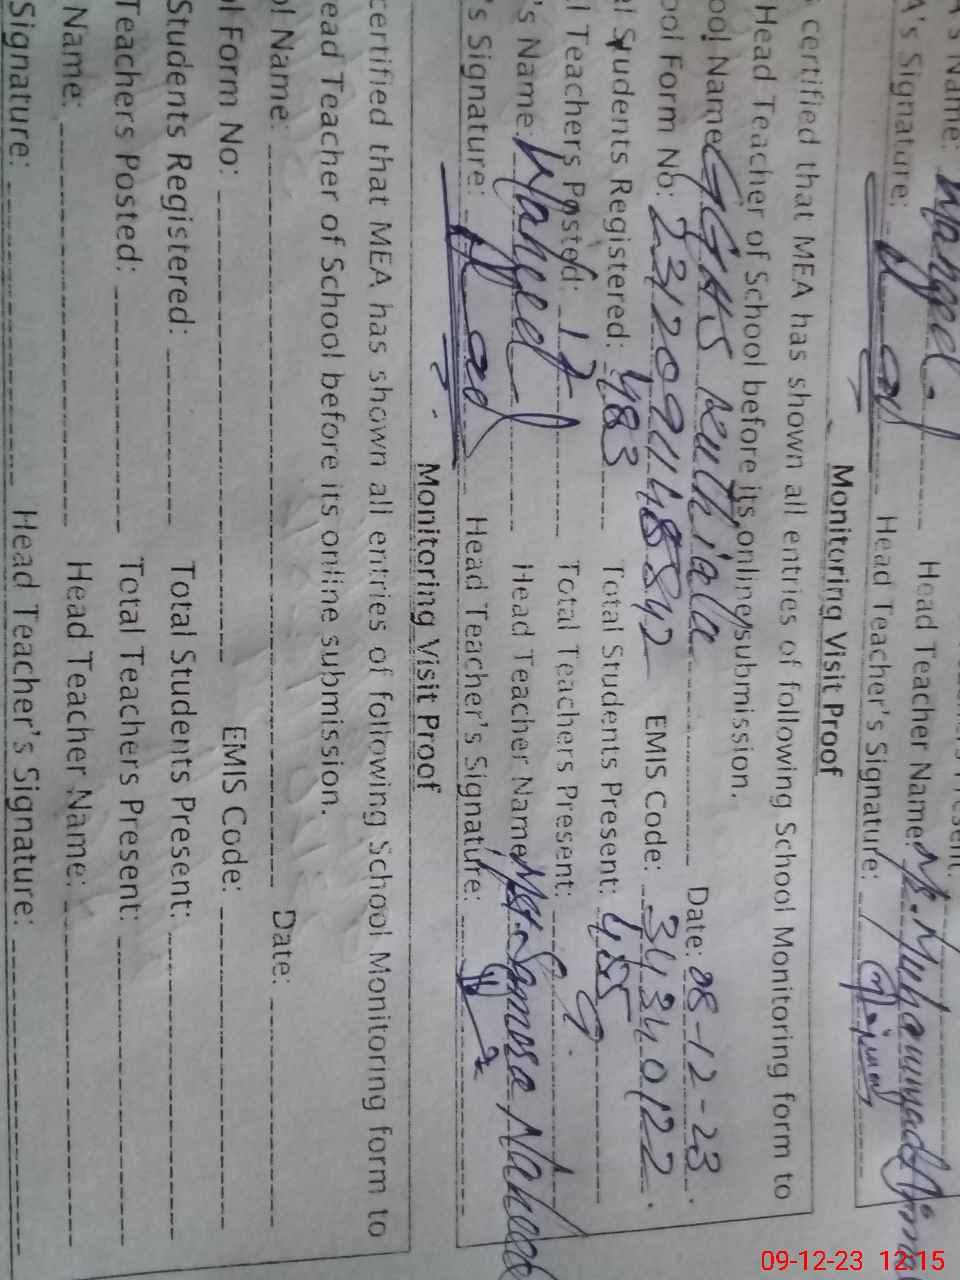 A's Name: Waheed Head Teacher Name: Mr. Muhammad
A's Signature: Head Teacher's Signature:
Monitoring Visit Proof
certified that MEA has shown all entries of following School Monitoring form to
Head Teacher of School before its online submission.
ool Name GGHS Kuthiala Date: 08-12-23.
ool Form No: EMIS Code: 34340122.
al Students Registered: 483 Total Students Present: 455
l Teachers Posted: 12 Total Teachers Present: 09.
's Name: Waheed Head Teacher Name Mst. Samera Naheed
's Signature: Head Teacher's Signature:
Monitoring Visit Proof
certified that MEA has shown all entries of following School Monitoring form to
ead Teacher of School before its online submission.
ol Name: Date:
l Form No: EMIS Code:
Students Registered: Total Students Present:
Teachers Posted: Total Teachers Present:
Name: Head Teacher Name:
Signature: Head Teacher's Signature:
09-12-23 12:15